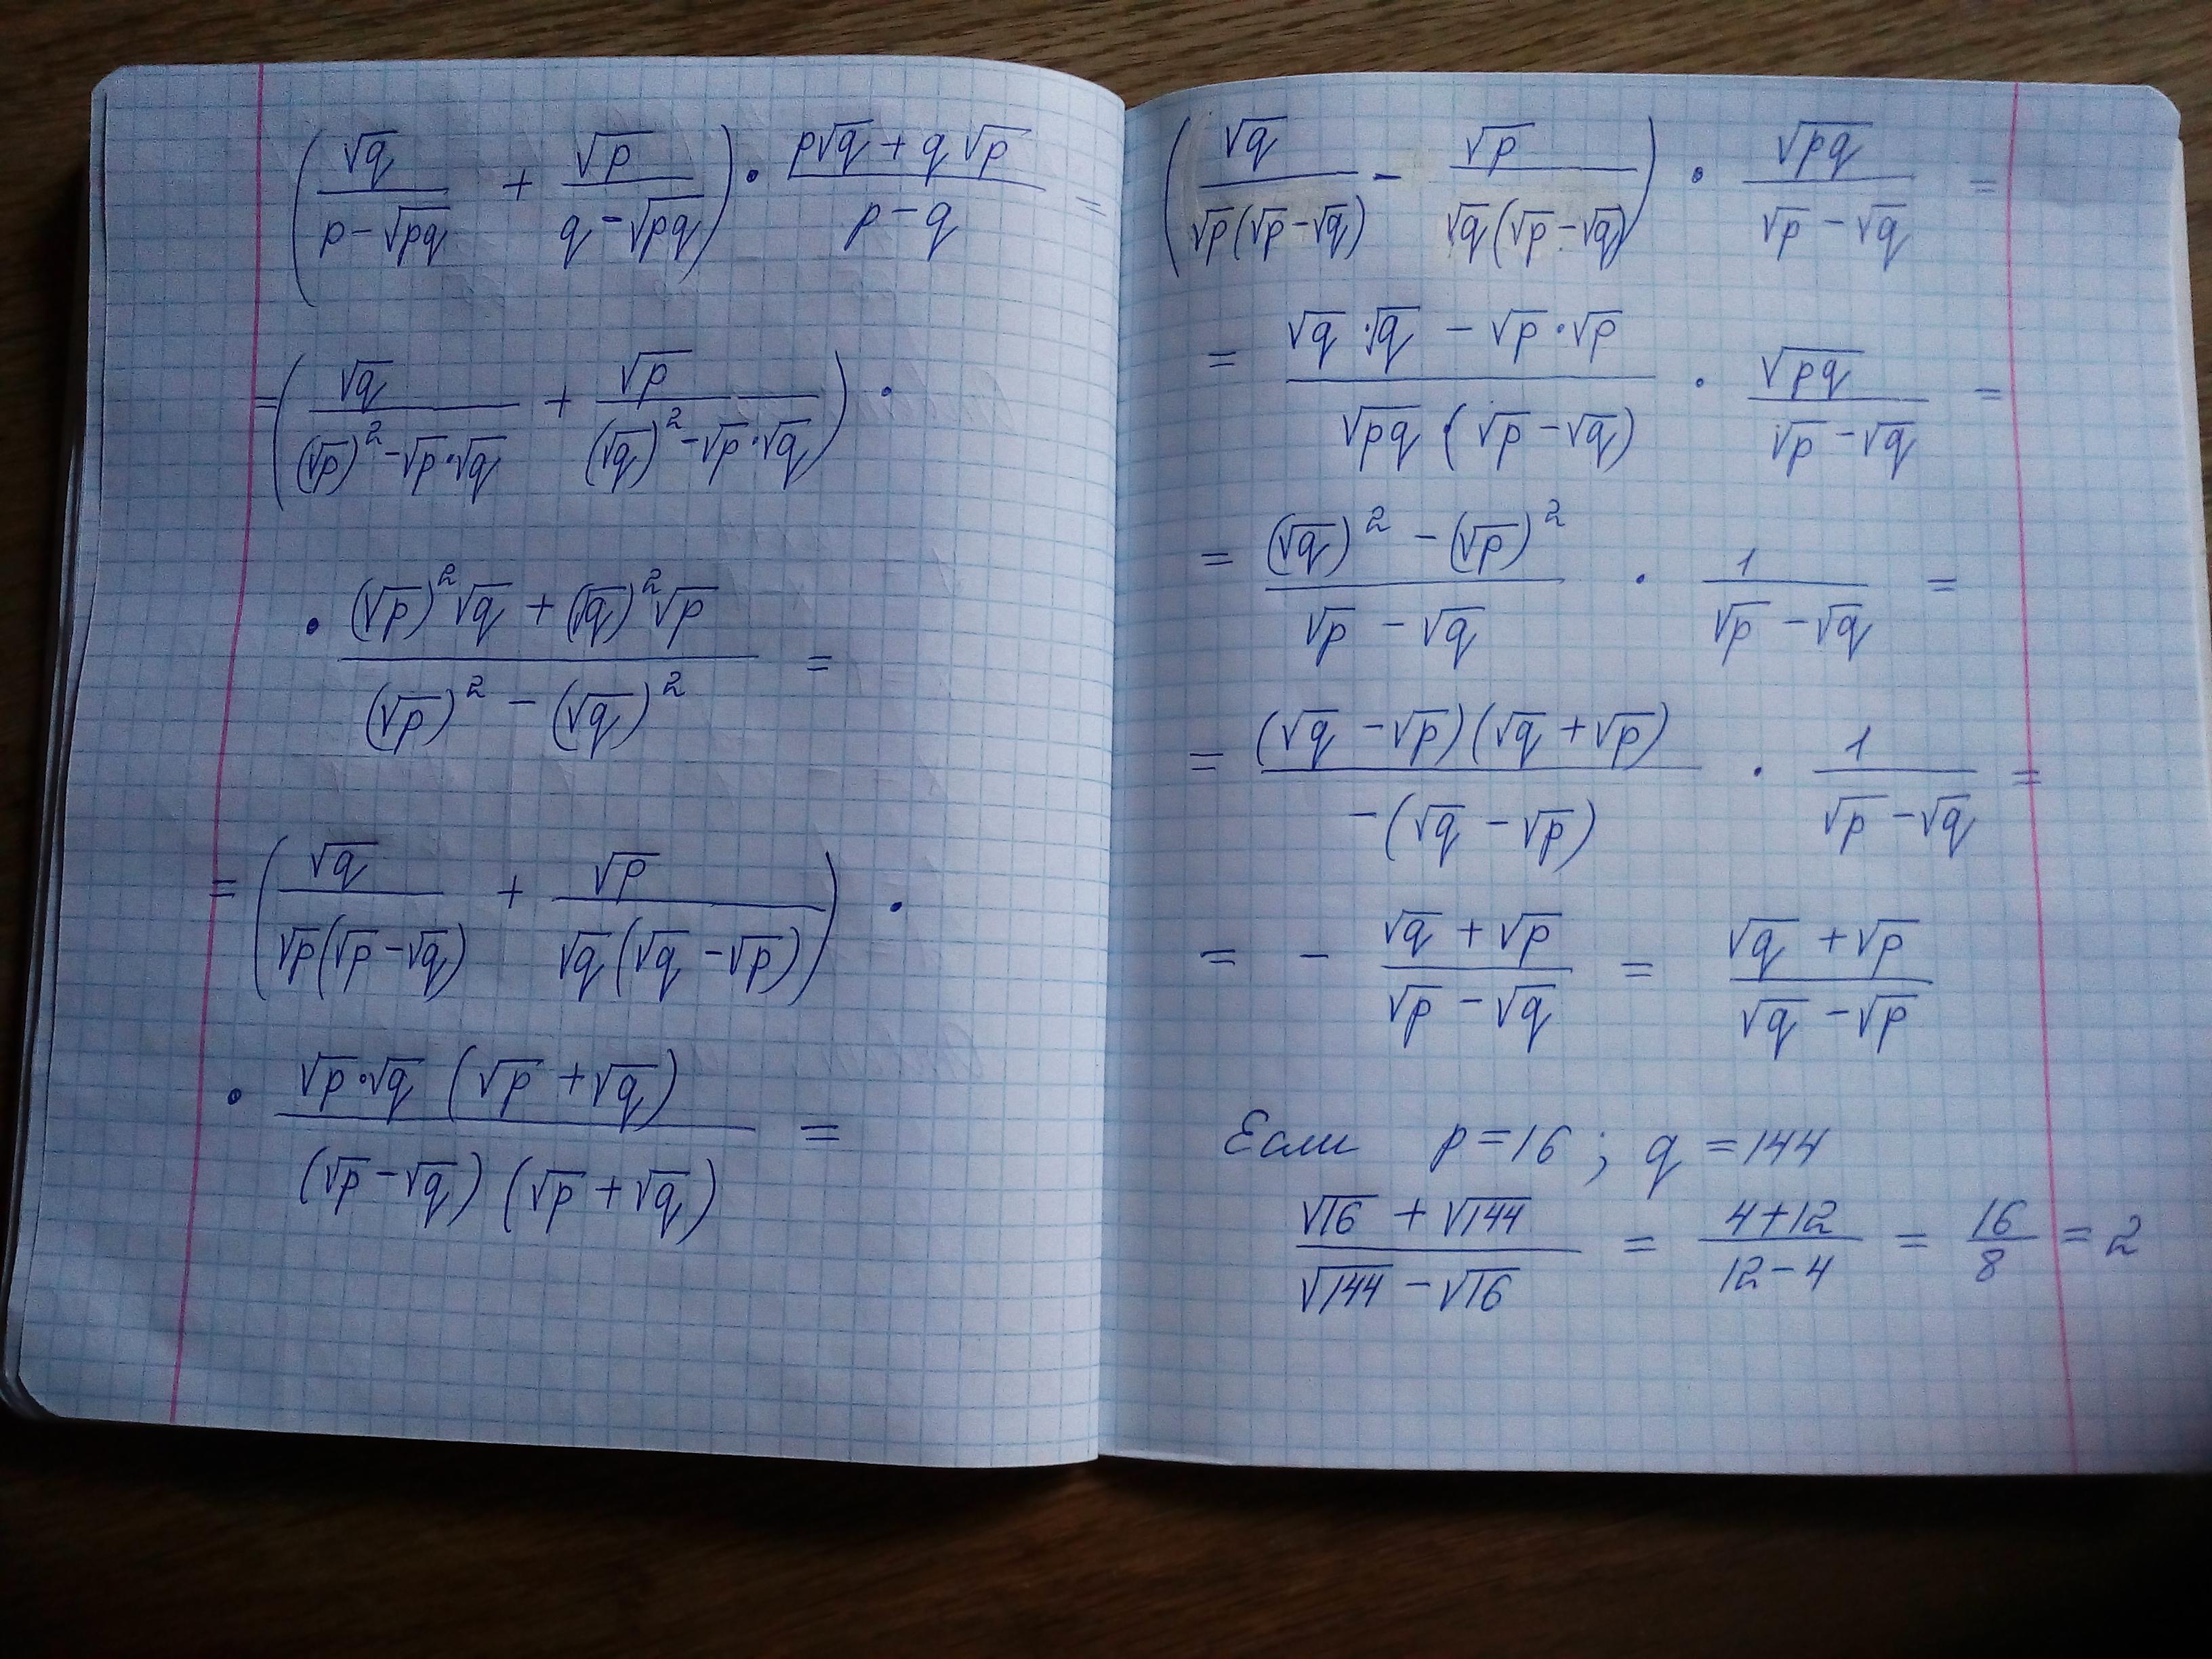 (√q/(p-√pq) + √p/(q-√pq)) · (p√q + q√p)/(p-q) =
=(√q/((√p)²-√p·√q) + √p/((√q)²-√p·√q)) ·
· ((√p)²√q + (√q)²√p)/((√p)² - (√q)²) =
= (√q/(√p(√p-√q)) + √p/(√q(√q-√p))) ·
· (√p·√q (√p+√q))/((√p-√q) (√p+√q)) =
(√q/(√p(√p-√q)) - √p/(√q(√p-√q))) · √pq/(√p-√q) =
= (√q·√q - √p·√p)/(√pq (√p-√q)) · √pq/(√p-√q) =
= ((√q)² - (√p)²)/(√p-√q) · 1/(√p-√q) =
= ((√q-√p)(√q+√p))/(-(√q-√p)) · 1/(√p-√q) =
= - (√q+√p)/(√p-√q) = (√q+√p)/(√q-√p)
Если p=16; q=144
(√16+√144)/(√144-√16) = (4+12)/(12-4) = 16/8 = 2